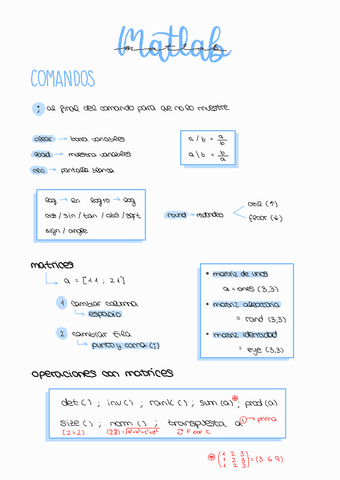 Matlab
matlab
COMANDOS
; al final del comando para que no lo muestre
clear → borra variables
→ muestra variables
clc → pantalla blanca
a / b = a/b
a \ b = b/a
log → ln log10 → log
cos / sin / tan / abs / sqrt
sign / angle
round → redondeo
ceil (↑)
floor (↓)
matrices
a = [1 1 ; 2 1]
1 cambiar columna
espacio
2 cambiar fila
punto y coma (;)
• matriz de unos
a = ones (3,3)
• matriz aleatoria
= rand (3,3)
• matriz identidad
= eye (3,3)
operaciones con matrices
det ( ) ; inv ( ) ; rank ( ) ; sum (a) ; prod (a)
size ( ) ; norm ( ) ; transpuesta a' → prima
(2×2)
F por C
(1 2 3
1 2 3
1 2 3) = (3 6 9)